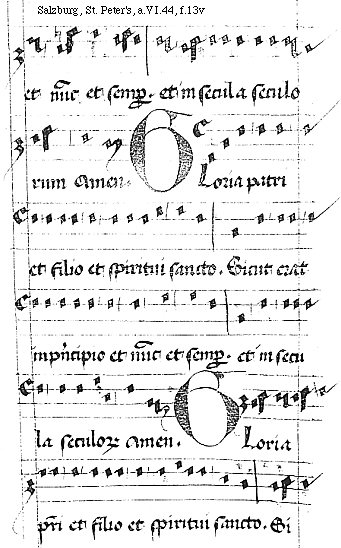 Salzburg, St. Peter's, a.VI.44, f.13v
et nũc et semp. et in secula seculo
rum Amen. Gloria patri
et filio et spiritui sancto. Sicut erat
in prĩcipio et nũc et semp. et in secu
la seculorꝝ amen. Gloria
pr̃i et filio et spiritui sancto. Si